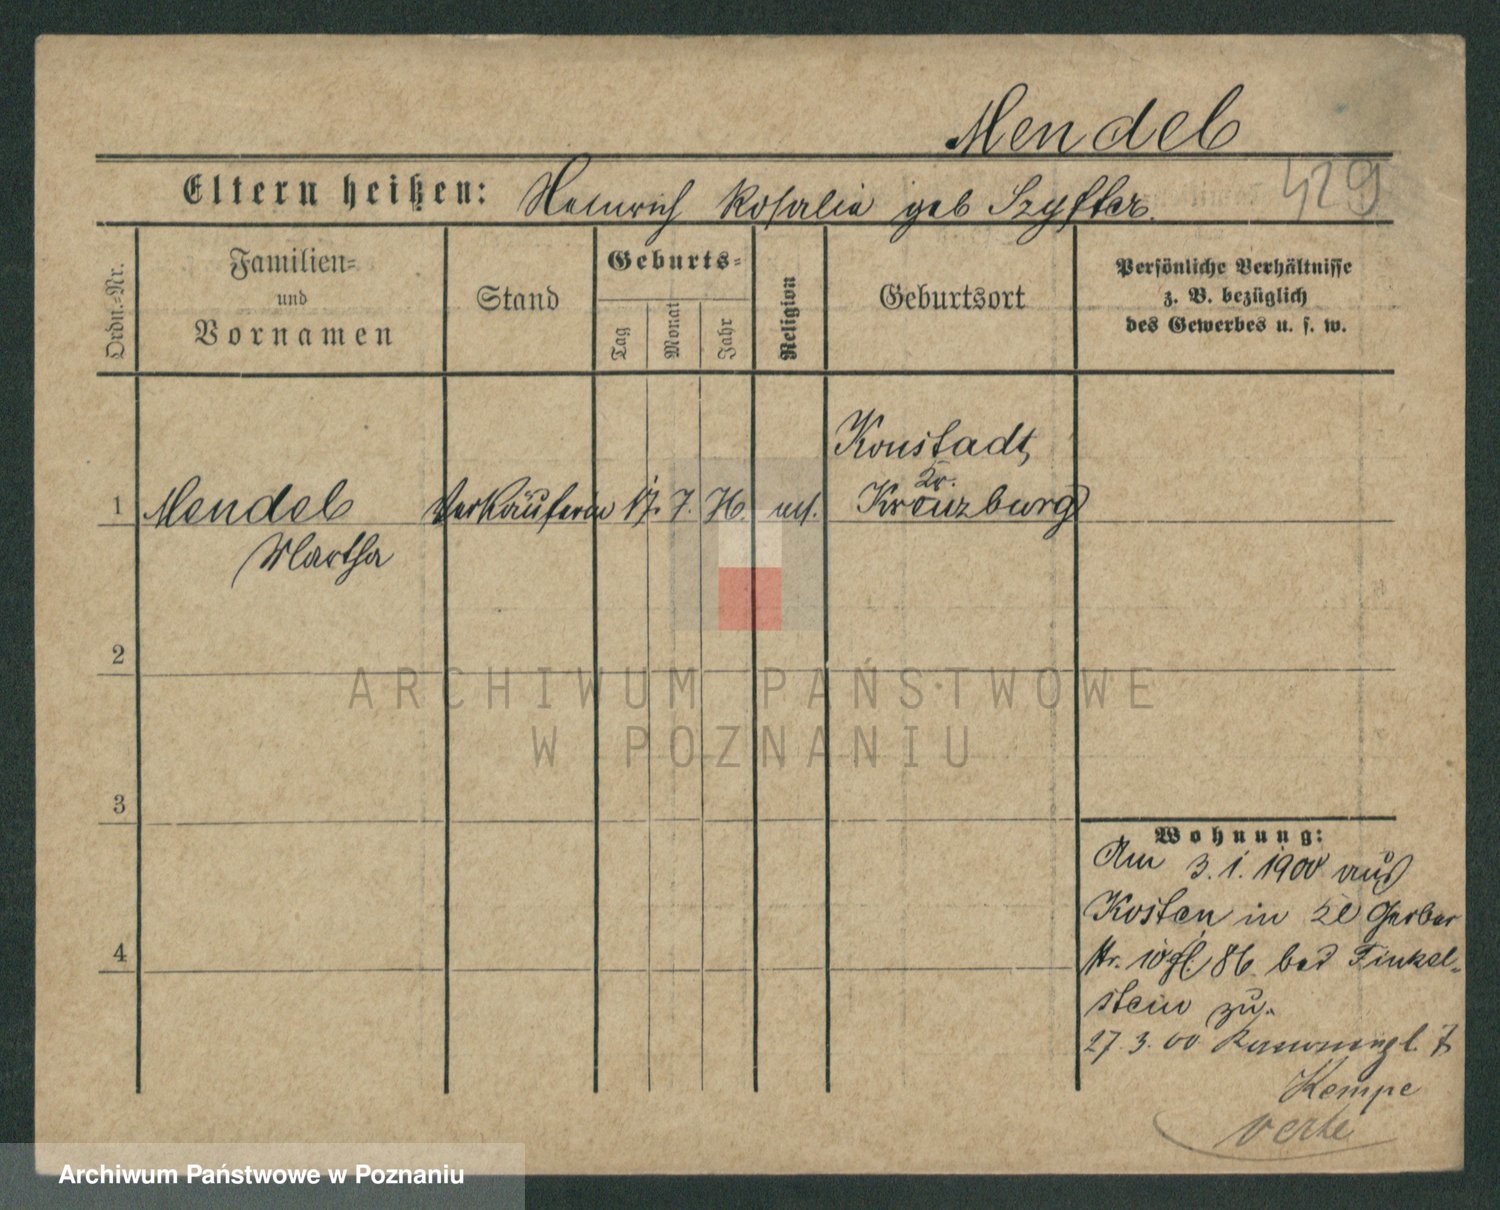 Mendel
429
Eltern heißen: Heinrich Rosalie geb Szyffer.
Ordn.-Nr.
Familien-
und
Vornamen
Stand
Geburts-
Tag
Monat
Jahr
Religion
Geburtsort
Persönliche Verhältnisse
z. B. bezüglich
des Gewerbes u. s. w.
1 Mendel Verkäuferin 17. 7. 76. Konstadt,
Kr.
Kreuzburg
Martha
2
3
4
ARCHIWUM PAŃSTWOWE
W POZNANIU
Wohnung:
Am 3.1.1900 aus
Kosten in Gerber
str. 10 bei Finkel-
stein zu.
27.3.00 7
Kempe
verte
Archiwum Państwowe w Poznaniu